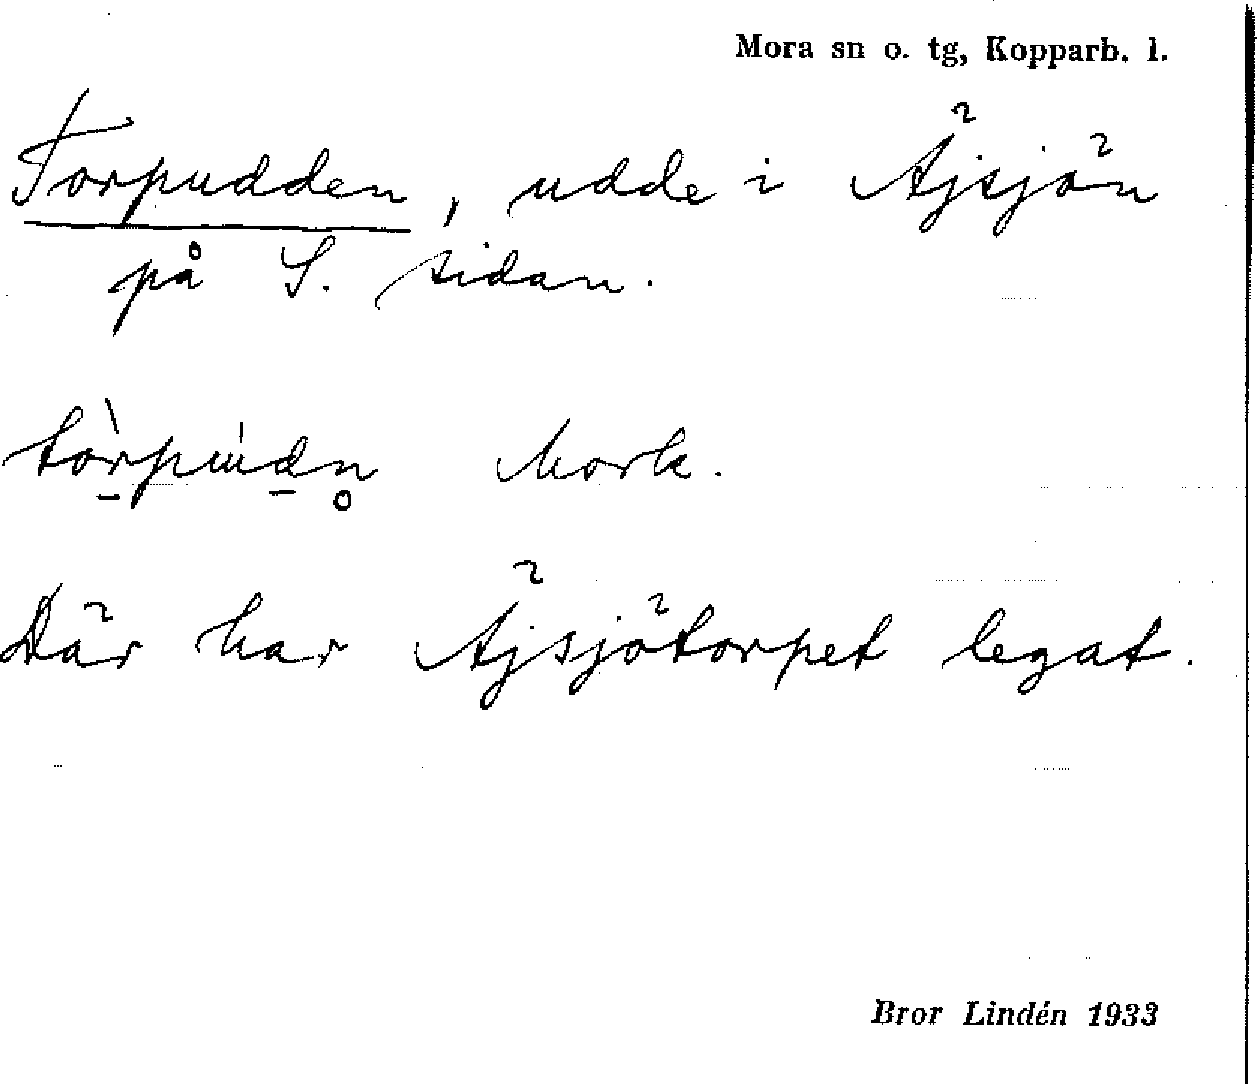 Mora sn o. tg, Kopparb. l.
Torpudden, udde i Äjsjön
på S. sidan.
Mork.
Där har Äjsjötorpet legat.
Bror Lindén 1933